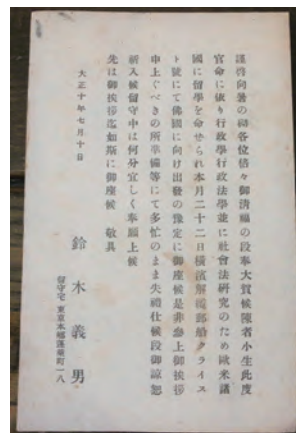 謹啓向暑の砌各位倍々御清福の段奉大賀候陳者小生此度
官命に依り行政學行政法學並に社會法研究のため歐米諸
國に留學を命ぜられ本月二十二日橫濱解纜郵船クライス
ト號にて佛國に向け出發の豫定に御座候是非參上御挨拶
申上ぐべきの所準備等にて多忙のまま失禮仕候段御諒恕
祈入候留守中は何分宜しく奉願上候
先は御挨拶迄如斯に御座候 敬具
大正十年七月十日
鈴木義男
留守宅 東京本鄉蓬萊町一八